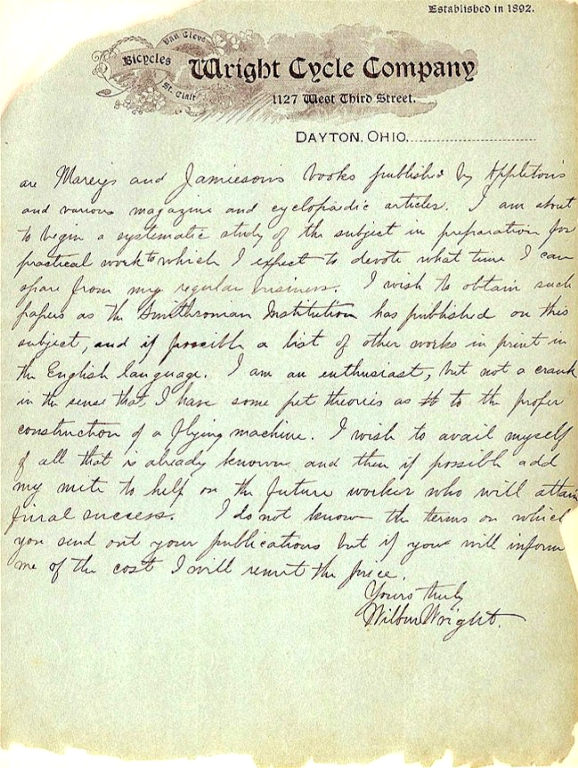 Established in 1892.
Bicycles
Van Cleve
St. Clair
Wright Cycle Company
1127 West Third Street.
DAYTON, OHIO,
are Mareys and Jamiesons books published by Appleton's
and various magazine and cyclopaedic articles. I am about
to begin a systematic study of the subject in preparation for
practical work to which I expect to devote what time I can
spare from my regular business. I wish to obtain such
papers as the Smithsonian Institution has published on this
subject, and if possible a list of other works in print in
the English language. I am an enthusiast, but not a crank
in the sense that I have some pet theories as to the proper
construction of a flying machine. I wish to avail myself
of all that is already known and then if possible add
my mite to help on the future worker who will attain
final success. I do not know the terms on which
you send out your publications but if you will inform
me of the cost I will remit the price.
Yours truly
Wilbur Wright.